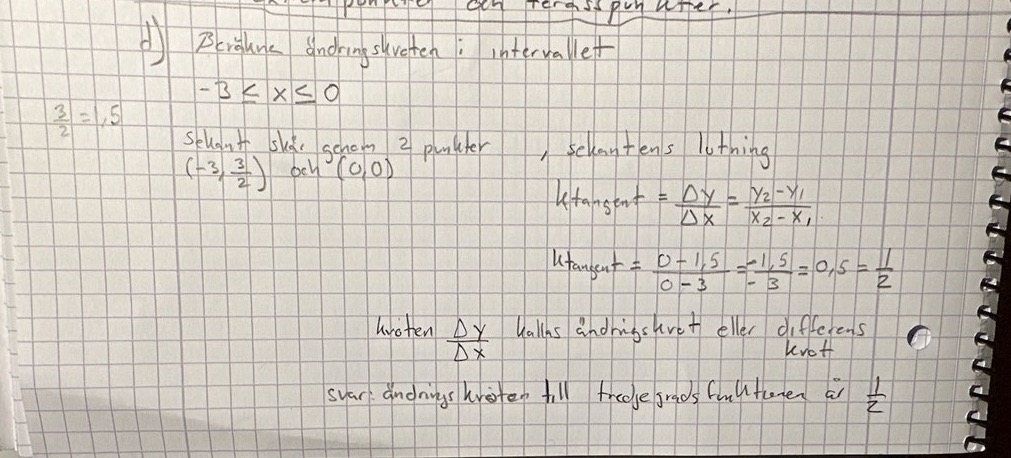 och terasspunkter.
d) Beräkna ändringskvoten i intervallet
-3 ≤ x ≤ 0
3/2 = 1,5
Sekant skär genom 2 punkter , sekantens lutning
(-3, 3/2) och (0,0)
ktangent = Δy/Δx = y2-y1/x2-x1
ktangent = 0-1,5/0-3 = -1,5/-3 = 0,5 = 1/2
kvoten Δy/Δx kallas ändrigskvot eller differens
kvot
svar: ändrings kvoten till tredjegrads funktionen är 1/2